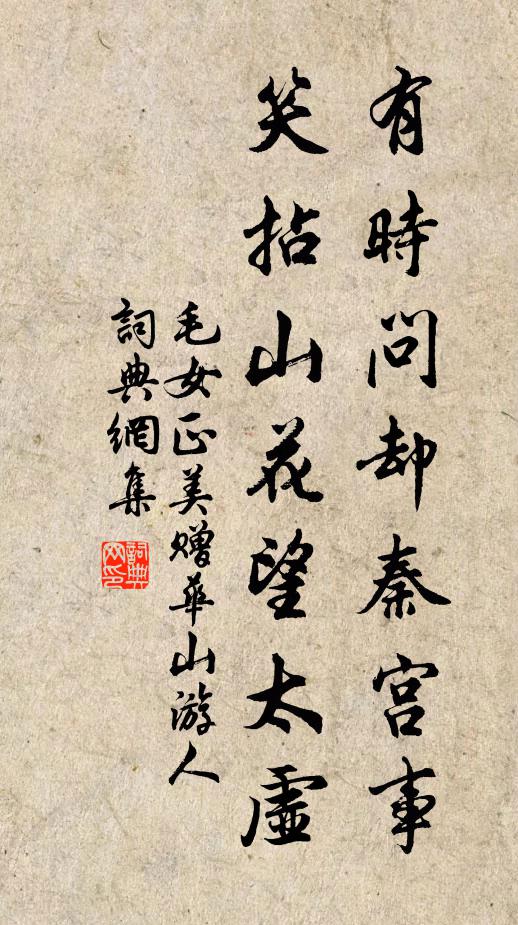 有時問却秦宮事
笑拈山花望太虛
毛女正美贈華山游人
詞典網集
詞典網印